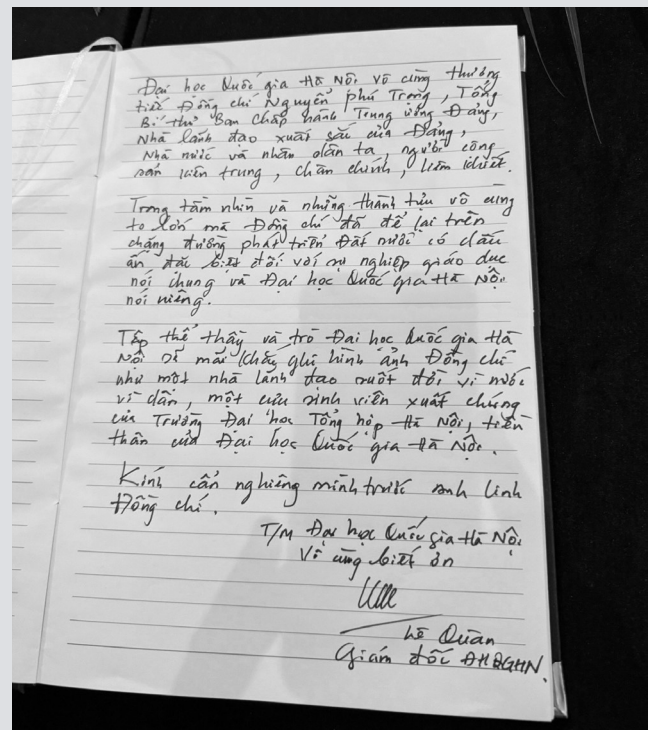 Đại học Quốc gia Hà Nội vô cùng thương
tiếc Đồng chí Nguyễn phú Trọng, Tổng
Bí thư Ban Chấp hành Trung ương Đảng,
Nhà lãnh đạo xuất sắc của Đảng,
Nhà nước và nhân dân ta, người cộng
sản kiên trung, chân chính, liêm khiết.
Trong tầm nhìn và những thành tựu vô cùng
to lớn mà Đồng chí đã để lại trên
chặng đường phát triển Đất nước có dấu
ấn đặc biệt đối với sự nghiệp giáo dục
nói chung và Đại học Quốc gia Hà Nội
nói riêng.
Tập thể thầy và trò Đại học Quốc gia Hà
Nội sẽ mãi khắc ghi hình ảnh Đồng chí
như một nhà lãnh đạo suốt đời vì nước
vì dân, một cựu sinh viên xuất chúng
của Trường Đại học Tổng hợp Hà Nội, tiền
thân của Đại học Quốc gia Hà Nội.
Kính cẩn nghiêng mình trước anh linh
Đồng chí.
T/M Đại học Quốc gia Hà Nội
Vô cùng biết ơn
Lê Quân
Giám đốc ĐHQGHN.